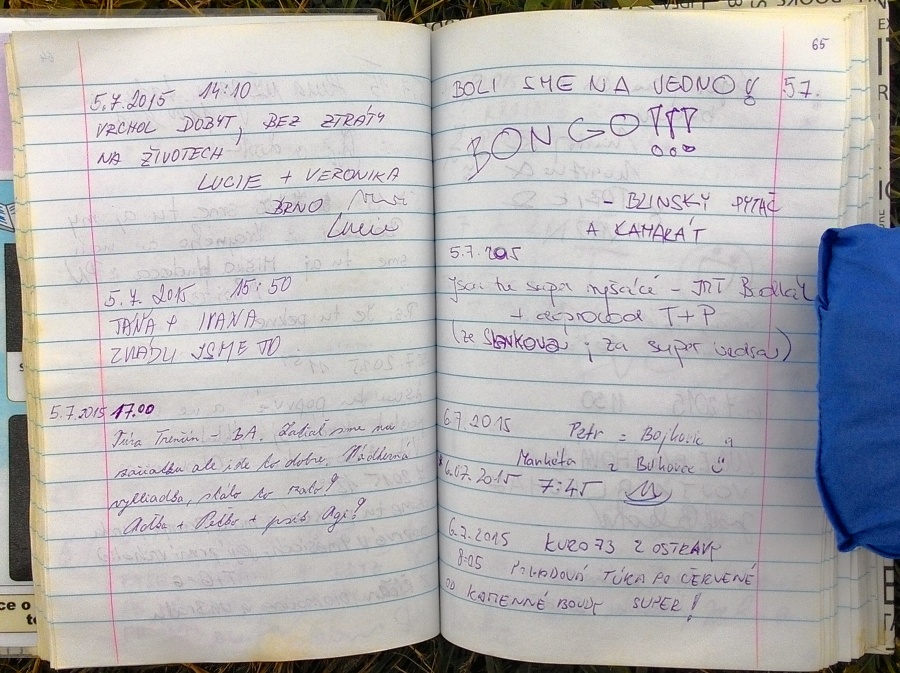 64
5.7.2015 14:10
VRCHOL DOBYT, BEZ ZTRÁTY
NA ŽIVOTECH
LUCIE + VERONIKA
BRNO
Lucie
5.7.2015 15:50
TÁŇA + IVANA
ZVÁDLI JSME TO
5.7.2015 17.00
Túra Trenčín - BA. Zatiaľ sme na
začiatku ale ide to dobre. Nádherná
vyhliadka, stálo to zato!
65
BOLI SME NA JEDNO! 5.7.
BONGO!!!
- BLINSKÝ PYTAČ
A KAMARÁT
5.7.2015
Jsme tu super
+ doprovod T+P
(ze Slavkova; za super)
6.7.2015 Petr z Bojkovic a
6.07.2015 Markéta z Bukovce
7:45
6.7.2015 KURO73 Z OSTRAVY
8:05 POHODOVÁ TÚRA PO ČERVENÉ
OD KAMENNÉ BOUDY SUPER!